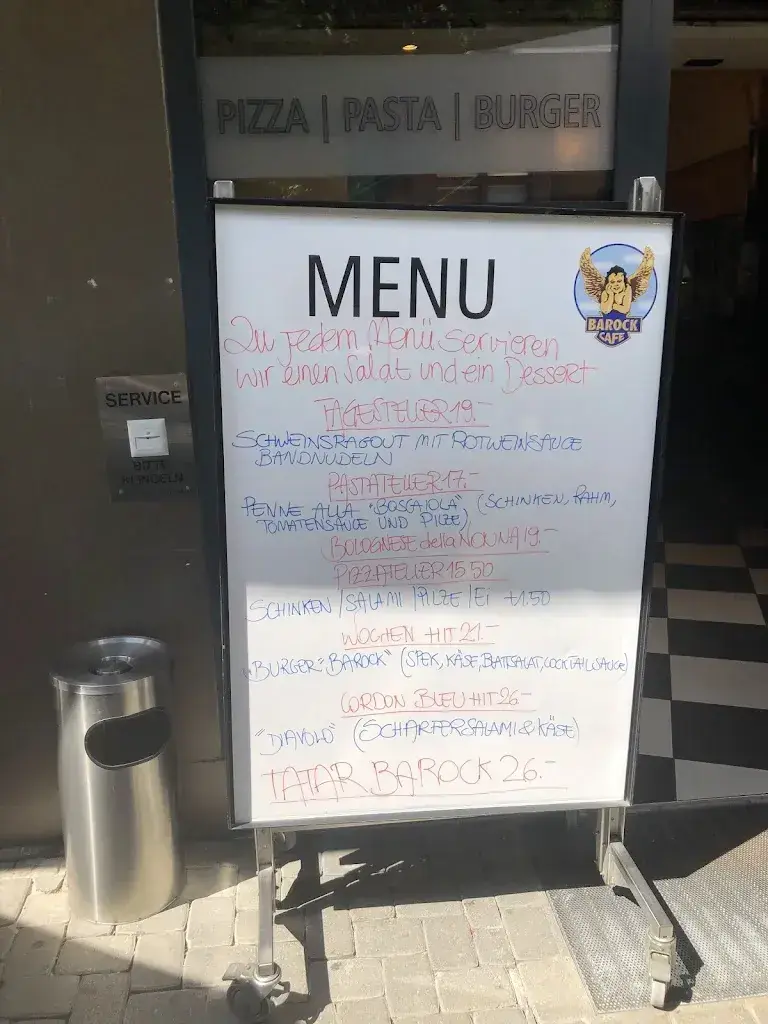 PIZZA | PASTA | BURGER
MENU
BAROCK
CAFE
Zu jedem Menü servieren
wir einen Salat und ein Dessert
TAGESTELLER 19.-
SCHWEINSRAGOUT MIT ROTWEINSAUCE
BANDNUDELN
PASTATELLER 17.-
PENNE ALLA "BOSCAIOLA" (SCHINKEN, RAHM,
TOMATENSAUCE UND PILZE)
BOLOGNESE della NONNA 19.-
PIZZATELLER 15.50
SCHINKEN / SALAMI / PILZE / Ei +1.50
WOCHEN HIT 21.-
"BURGER" BAROCK" (SPEK, KÄSE, BLATTSALAT, COCKTAILSAUCE)
CORDON BLEU HIT 26.-
"DIAVOLO" (SCHARFER SALAMI & KÄSE)
TATAR BAROCK 26.-
SERVICE
BITTE
KLINGELN